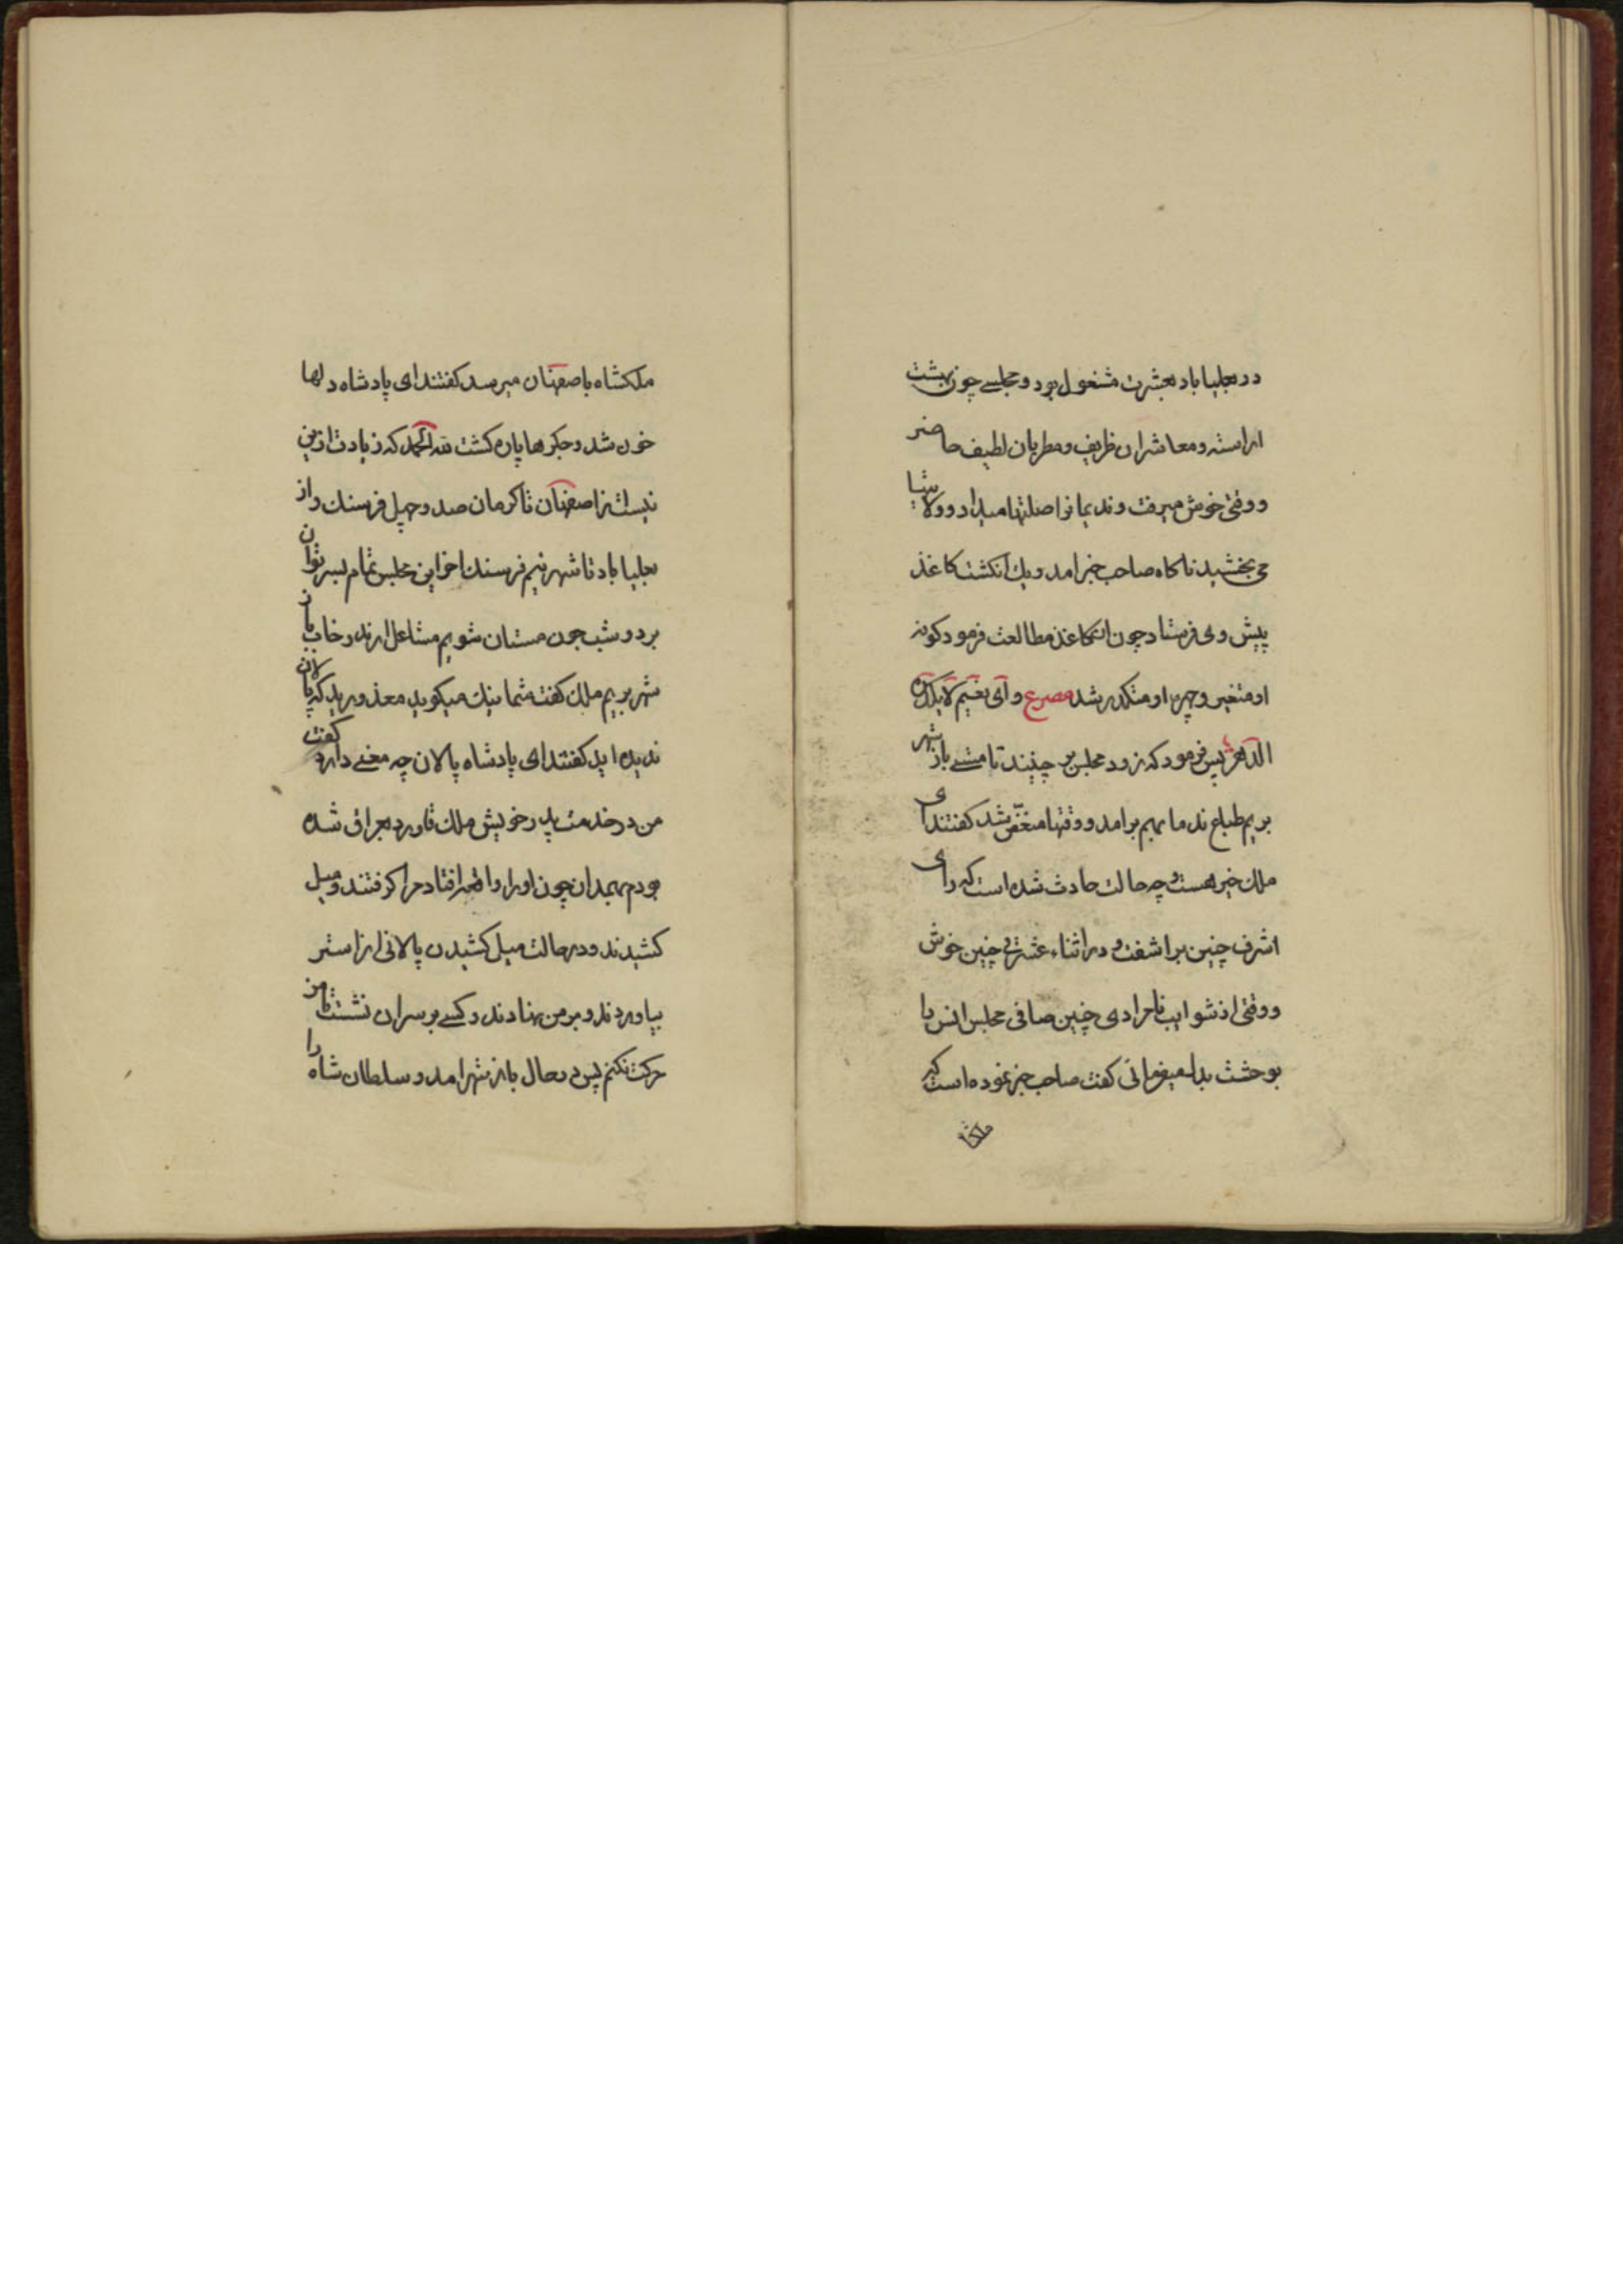 در بعلیاباد بعشرت مشغول بود و مجلسی چون بهشت
اراسته و معاشران ظریف و مطربان لطیف حاضر
و وقتی خوش میرفت و ندیمانرا صلتها میداد و ولایتها
می بخشید ناکاه صاحب خبر امد و یک انکشت کاغذ
پیش وی فرستاد چون ان کاغذ مطالعت فرمود کونه
او متغیر و چهره او متکدر شد مصرع و ای نعیم لا یکدره
الدهر پس فرمود که زود مجلس بر چینند تا مشی باز شهر
بریم طباع ندما بهم برامد و وقتها منغّص شد کفتند ای
ملک خیر هست و چه حالت حادث شده است که رای
اشرف چنین براشفت و در اثناء عشرتی چنین خوش
و وقتی از شوایب نامرادی چنین صافی مجلس انس را
بوحشت بدل میفرمائی کفت صاحب خبر نموده است که
ملکشا
ملکشاه باصفهان میرسد کفتند ای پادشاه دلها
خون شد و جکرها پاره کشت لله الحمد که زیادت ازین
نیست از اصفهان تا کرمان صد و چهل فرسنک و از
بعلیاباد تا شهر نیم فرسنک اخر این مجلس تمام بسر توان
برد و شب چون مستان شویم مشاعل ارند و خاب باز
شهر بریم ملک کفت شما نیک میکویید معذورید که پالان
ندیده اید کفتند ای پادشاه پالان چه معنی دارد کفت
من در خدمت پدر خویش ملک قاورد بعراق شده
بودم بهمدان چون او را واقعه افتاد مرا کرفتند و میل
کشیدند و در حالت میل کشیدن پالانی از استر
بیاوردند و بر من نهادند و کسی بر سر ان نشست تا من
حرکت نکنم پس در حال باز شهر امد و سلطان شاه را